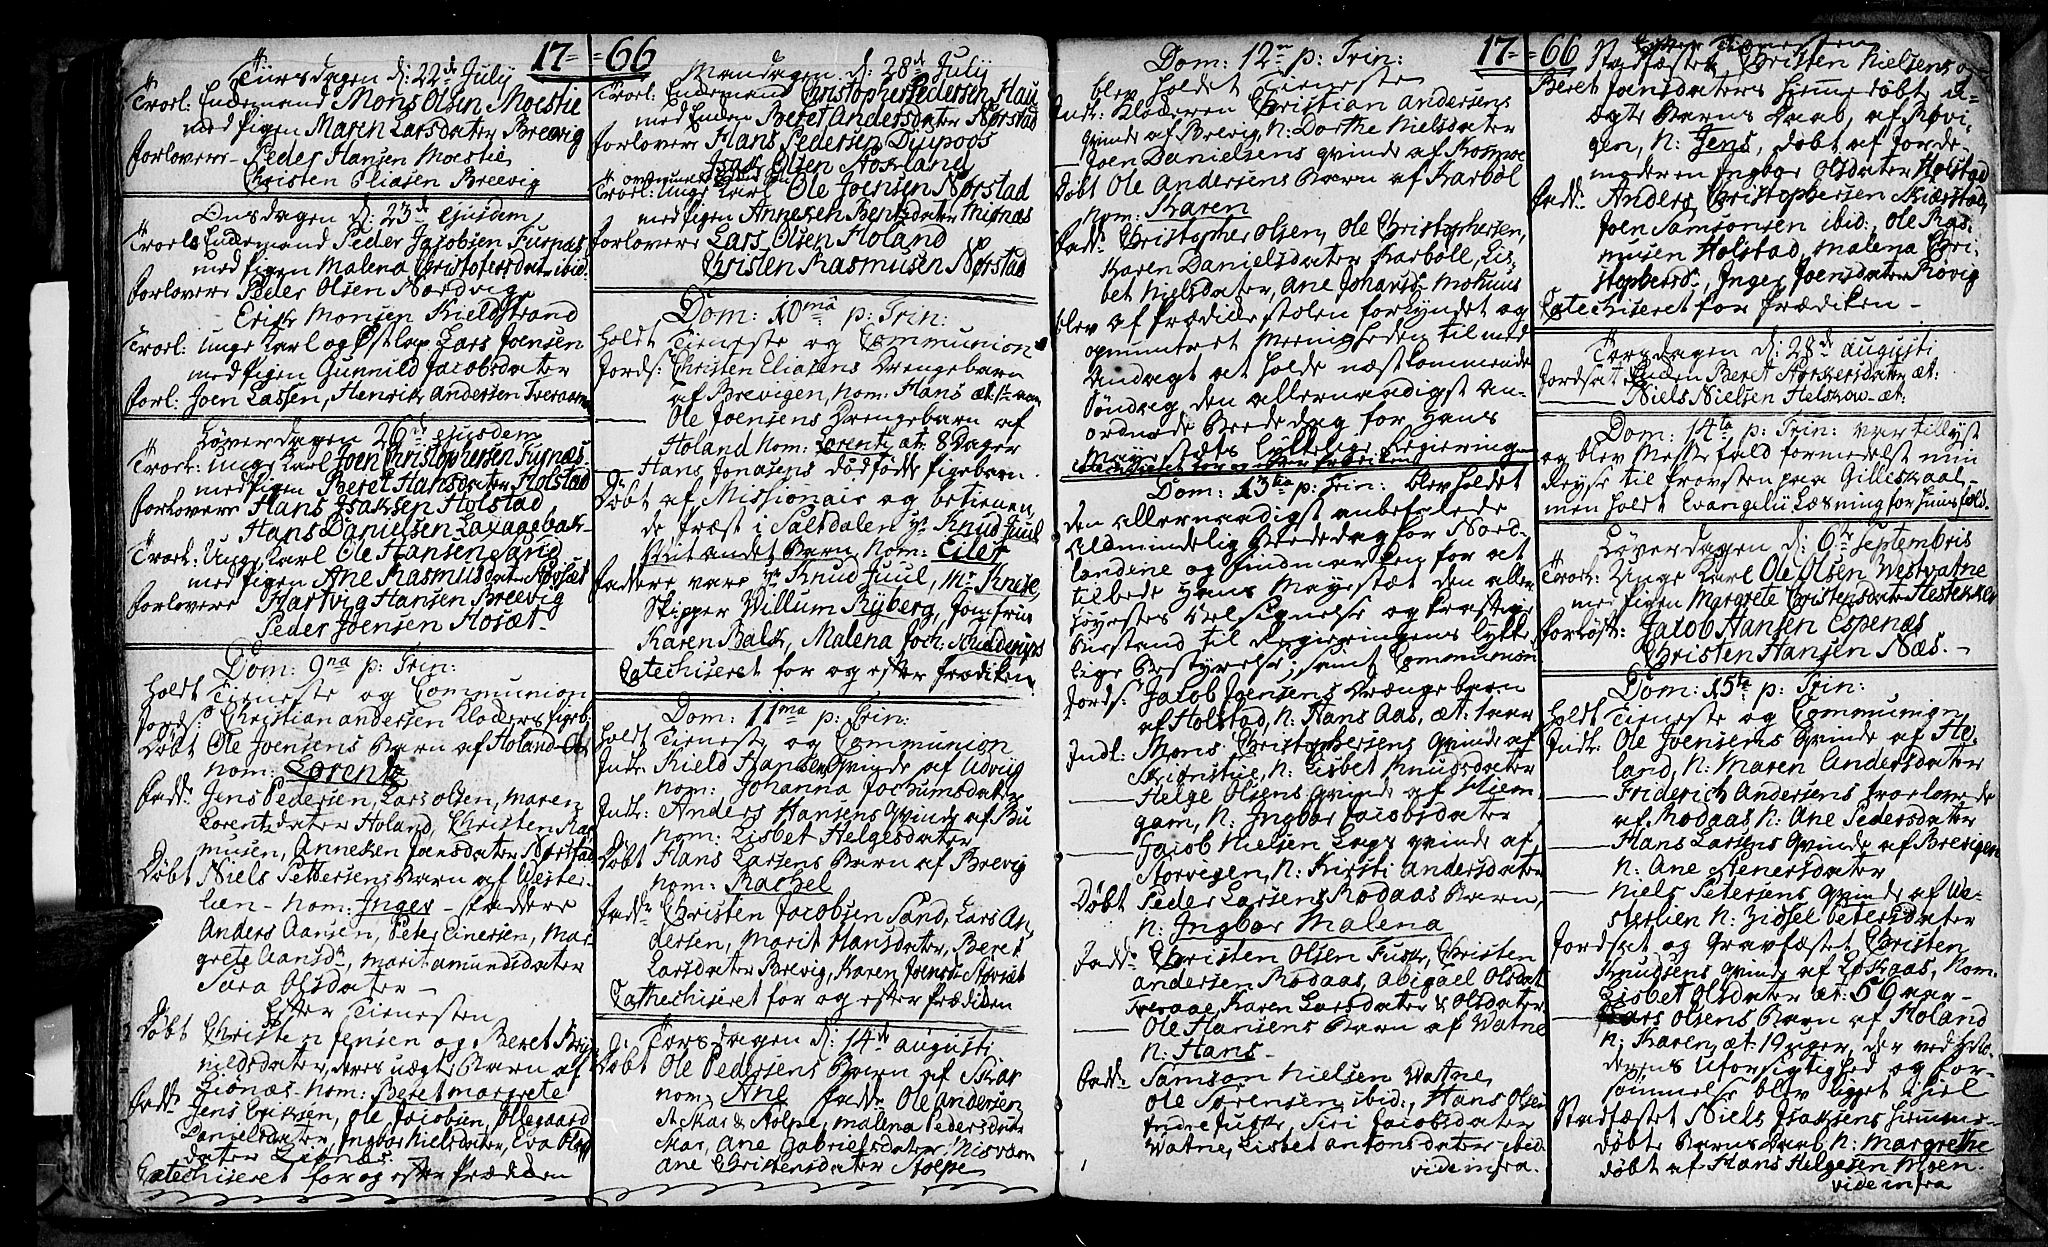 17=
=66
Tiirsdagen d: 22de July
Troel: Enckemand Mons Olsen Moestie
med pigen Maren Larsdater Breevig
forlovere - Peder Hansen Moestie
Christen Eliasen Breevig
Onsdagen d: 23de ejusdem
Troel: Enckemand Peder Jacobsen Fursnæs
med pigen Malena Christophersdat: ibid:
forlovere Peder Olsen Nordvig
Erich Monsen Kieldstrand
Troel: unge Karl og Lap Lars Joensen
med pigen Gunnild Jacobsdater
forl: Joen Lassen, Henrich Andersen Tveraaen
Løverdagen 26de ejusdem
Troel: unge Karl Joen Christophersen Fursnæs
med pigen Beret Hansdater Holstad
forlovere Hans Isaksen Holstad
Hans Danielsen Laxagebak
Troel: Ung Karl Ole Hansen Sand
med pigen Ane Rasmusdater
forlovere Hartvig Hansen Breevig
Peder Joensen Hosæt
Dom: 9na p: Trin:
holdt Tieneste og Communion
Jords: Christian Andersen Kloders pigeb:
Døbt Ole Joensens Barn af Holand
nom: Lorentz
fadd: Jens Pedersen, Lars Olsen, Maren
Lorentzdater Holand, Christen Ras
musen, Anneken Joensdater Norstad
Døbt Niels Pettersens Barn af Wester
lien - nom: Inger - faddere
Anders Aansen, Peter Einersen, Mar
grete Aansdr, Marit Amundsdater
Sara Olsdater -
Efter Tienesten
Døbt Christen Jensen og Beret Bry
nildsdater, deres uægte Barn af
nom: Beret Margrete
fadd: Jens Eriksen, Ole Jacobsen, Ollegaard
Danielsdater, Ingbor Nielsdater, Eva Ols
dater
Catechiseret for og efter Prædiken
Mandagen d: 28de July
Troel: Enckemand Christopher Pedersen Hau
med Enken Beret Andersdater Norstad
forlovere Hans Pedersen Diupoos
Isak Olsen Storland
Troel: unge Karl Ole Joensen Norstad
med pigen Anneken Bentsdater Misnæs
forlovere Lars Olsen Holand
Christen Rasmusen Norstad
Dom: 10ma p: Trin:
holdt Tieneste og Communion
Jords: Christen Eliasens Drengebarn
af Brevigen, nom: Hans æt: 1/2 aar
Ole Joensens Drengebarn af
Holand nom: Lorentz æt: 8 Dager
Hans Jonasens dødfødde pigebarn
Døbt af Missionair og betienen
de Præst i Saltdalen Hr Knud Juul
Mit andet Barn, nom: Eiler
faddere vare Hr Knud Juul, Mr Knese,
Skipper Willum Ryberg, Jomfrue
Karen Balk, Malena Joch: Schielderups
Catechiseret for og efter Prædiken
Dom: 11ma p: Trin:
holdt Tieneste og Communion
Indl: Kield Hansen Qvinde af Udvig
nom: Johanna Jochumsdater
Indl: Anders Hansens Qvinde af Bu
nom: Lisbet Helgesdater
Døbt Hans Larsens Barn af Brevig
nom: Rachel
fadd: Christen Jacobsen Sand, Lars An
dersen, Marit Hansdater, Beret
Larsdater Brevig, Karen Joensd:
Catechiseret for og efter Prædiken
Torsdagen d: 14de Augusti
Døbt Ole Pedersens Barn af Skar
nom: Ane fadd: Ole Andersen
Skar & Stolpe, Malena Pedersdater
Skar, Ane Gabrielsdater Misvær
Ane Christensdater Stolpe
17=
=66
Dom: 12te p: Trin:
blev holdet Tieneste
Indl: Kloderen Christian Andersens
Qvinde af Brevig, N: Dorthe Nielsdater
— Joen Danielsens Qvinde af Rosmoe
Døbt Ole Andersens Barn af Karbøl
nom: Karen
fadd: Christopher Olsen, Ole Christophersen,
Karen Danielsdater Karbøll, Lis
bet Nielsdater, Ane Johansd: Mohuus
blev af Prædickestolen forkyndet og
opmuntret Meenigheden til med
Andagt at holde næstkommende
Søndag den allernaadigst an-
ordnede Bededag for Hans
Mayestæts lykkelige Regiering
Catechiseret for og efter Prædiken
Dom: 13tia p: Trin: blev holdet
den allernaadigst anbefalede
Allmindelig Bededag for Nord-
landene og Findmarken for at
tilbede Hans Mayestæt den aller
høyestes Velsignelse og kraftige
Bistand til Regieringens lykke
lige Bestyrelse, samt Communion
Jords: Jacob Joensens Drængebarn
af Holstad, N: Hans Aas, æt: 1 aar
Indl: Mons Christophersens Qvinde af
N: Lisbet Knudsdater
— Helge Olsens Qvinde af Miem
gam, N: Ingbor Jacobsdater
— Jacob Nielsen Laps Qvinde af
Storvigen, N: Kirsti Andersdater
Døbt Peder Larsens Rodaas Barn,
N: Ingbor Malena
fadd: Christen Olsen Fuske, Christen
Andersen Rodaas, Abigael Olsdat
Tveraae, Karen Larsdater & Olsdater
— Ole Hansens Barn af Watne
N: Hans -
fadd: Samson Nielsen Watne,
Ole Sørensen ibid:, Hans Olsen
Indre Fuske, Siri Jacobsdater
Watne, Lisbet Antonsdater ibid:
vide infra.
Efter Tienesten
Stadfæstet Christen Nielsens og
Beret Jensdaters hiemme døbte u-
ægte Barns Daab, af Røvi-
gen, N: Jens, døbt af Jorde-
moderen Ingbor Olsdater Holstad
fadd: Anders Christophersen Skierstad,
Joen Samsonsen ibid:, Ole Ras-
musen Holstad, Malena Chri-
stophersd:, Inger Joensdater Røvig
Catechiseret for Prædiken -
Torsdagen d: 28de Augusti
Jordsat Enken Beret æt:
— Niels Nielsen æt:
Dom: 14ta p: Trin: var tillyst
og blev Messefald formedelst min
Reyse til Provsten paa Gilleskaal,
men holdt Evangelii Læsning for huusfolk.
Løverdagen d: 6te Septembris
Troel: Unge Karl Ole Olsen Westvatne
med pigen Margrete Christensdater
forløft: Jacob Hansen Espenæs
Christen Hansen Næs. -
Dom: 15ta p: Trin:
holdt Tieneste og Communion
Indl: Ole Joensens Qvinde af Ho-
land, N: Maren Andersdater
— Friderich Andersens trolovede
af Rodaas N: Ane Pedersdater
— Hans Larsens Qvinde af Brevigen
N: Ane Stenersdater
— Niels Petersens Qvinde af We-
sterlien N: Zidsel Petersdater
Jordsat og Gravfæstet Christen
Knudsens Qvinde af Løkaas, Nom:
Lisbet Olsdater æt: 56 aar -
— Lars Olsens Barn af Holand
N: Karen, æt: 19 uger, der ved
derens Uforsigtighed og for-
sømmelse blev ligget ihiel
Stadfæstet Niels Isaksens hiemme-
døbte Barns Daab N: Margrethe
døbt af Hans Helgesen Moen.
vide infra